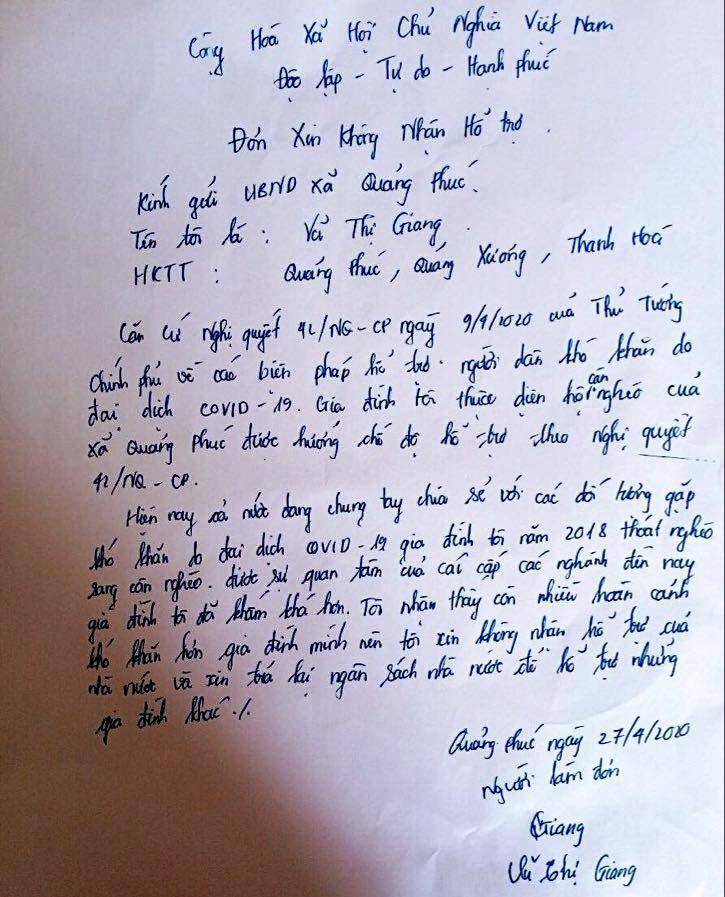 Cộng Hoà Xã Hội Chủ Nghĩa Việt Nam
Độc lập - Tự do - Hạnh phúc
Đơn Xin Không Nhận Hỗ trợ.
Kính gửi UBND xã Quảng Phúc.
Tên tôi là : Vũ Thị Giang.
HKTT : Quảng Phúc, Quảng Xương, Thanh Hoá
Căn cứ nghị quyết 42/NQ-CP ngày 9/4/2020 của Thủ Tướng
chính phủ về các biện pháp hỗ trợ. người dân khó khăn do
đại dịch COVID-19. Gia đình tôi thuộc diện hộ cận nghèo của
xã Quảng Phúc được hưởng chế độ hỗ trợ theo nghị quyết
42/NQ-CP.
Hiện nay cả nước đang chung tay chia sẻ với các đối tượng gặp
khó khăn do đại dịch COVID-19 gia đình tôi năm 2018 thoát nghèo
sang cận nghèo. được sự quan tâm của caí cấp các nghành đến nay
gia đình tôi đã khấm khá hơn. Tôi nhận thấy còn nhiều hoàn cảnh
khó khăn hơn gia đình mình nên tôi xin không nhận hỗ trợ của
nhà nước và xin trả lại ngân sách nhà nước để hỗ trợ những
gia đình khác ./.
Quảng Phúc ngày 27/4/2020
Người làm đơn
Giang
Vũ Thị Giang